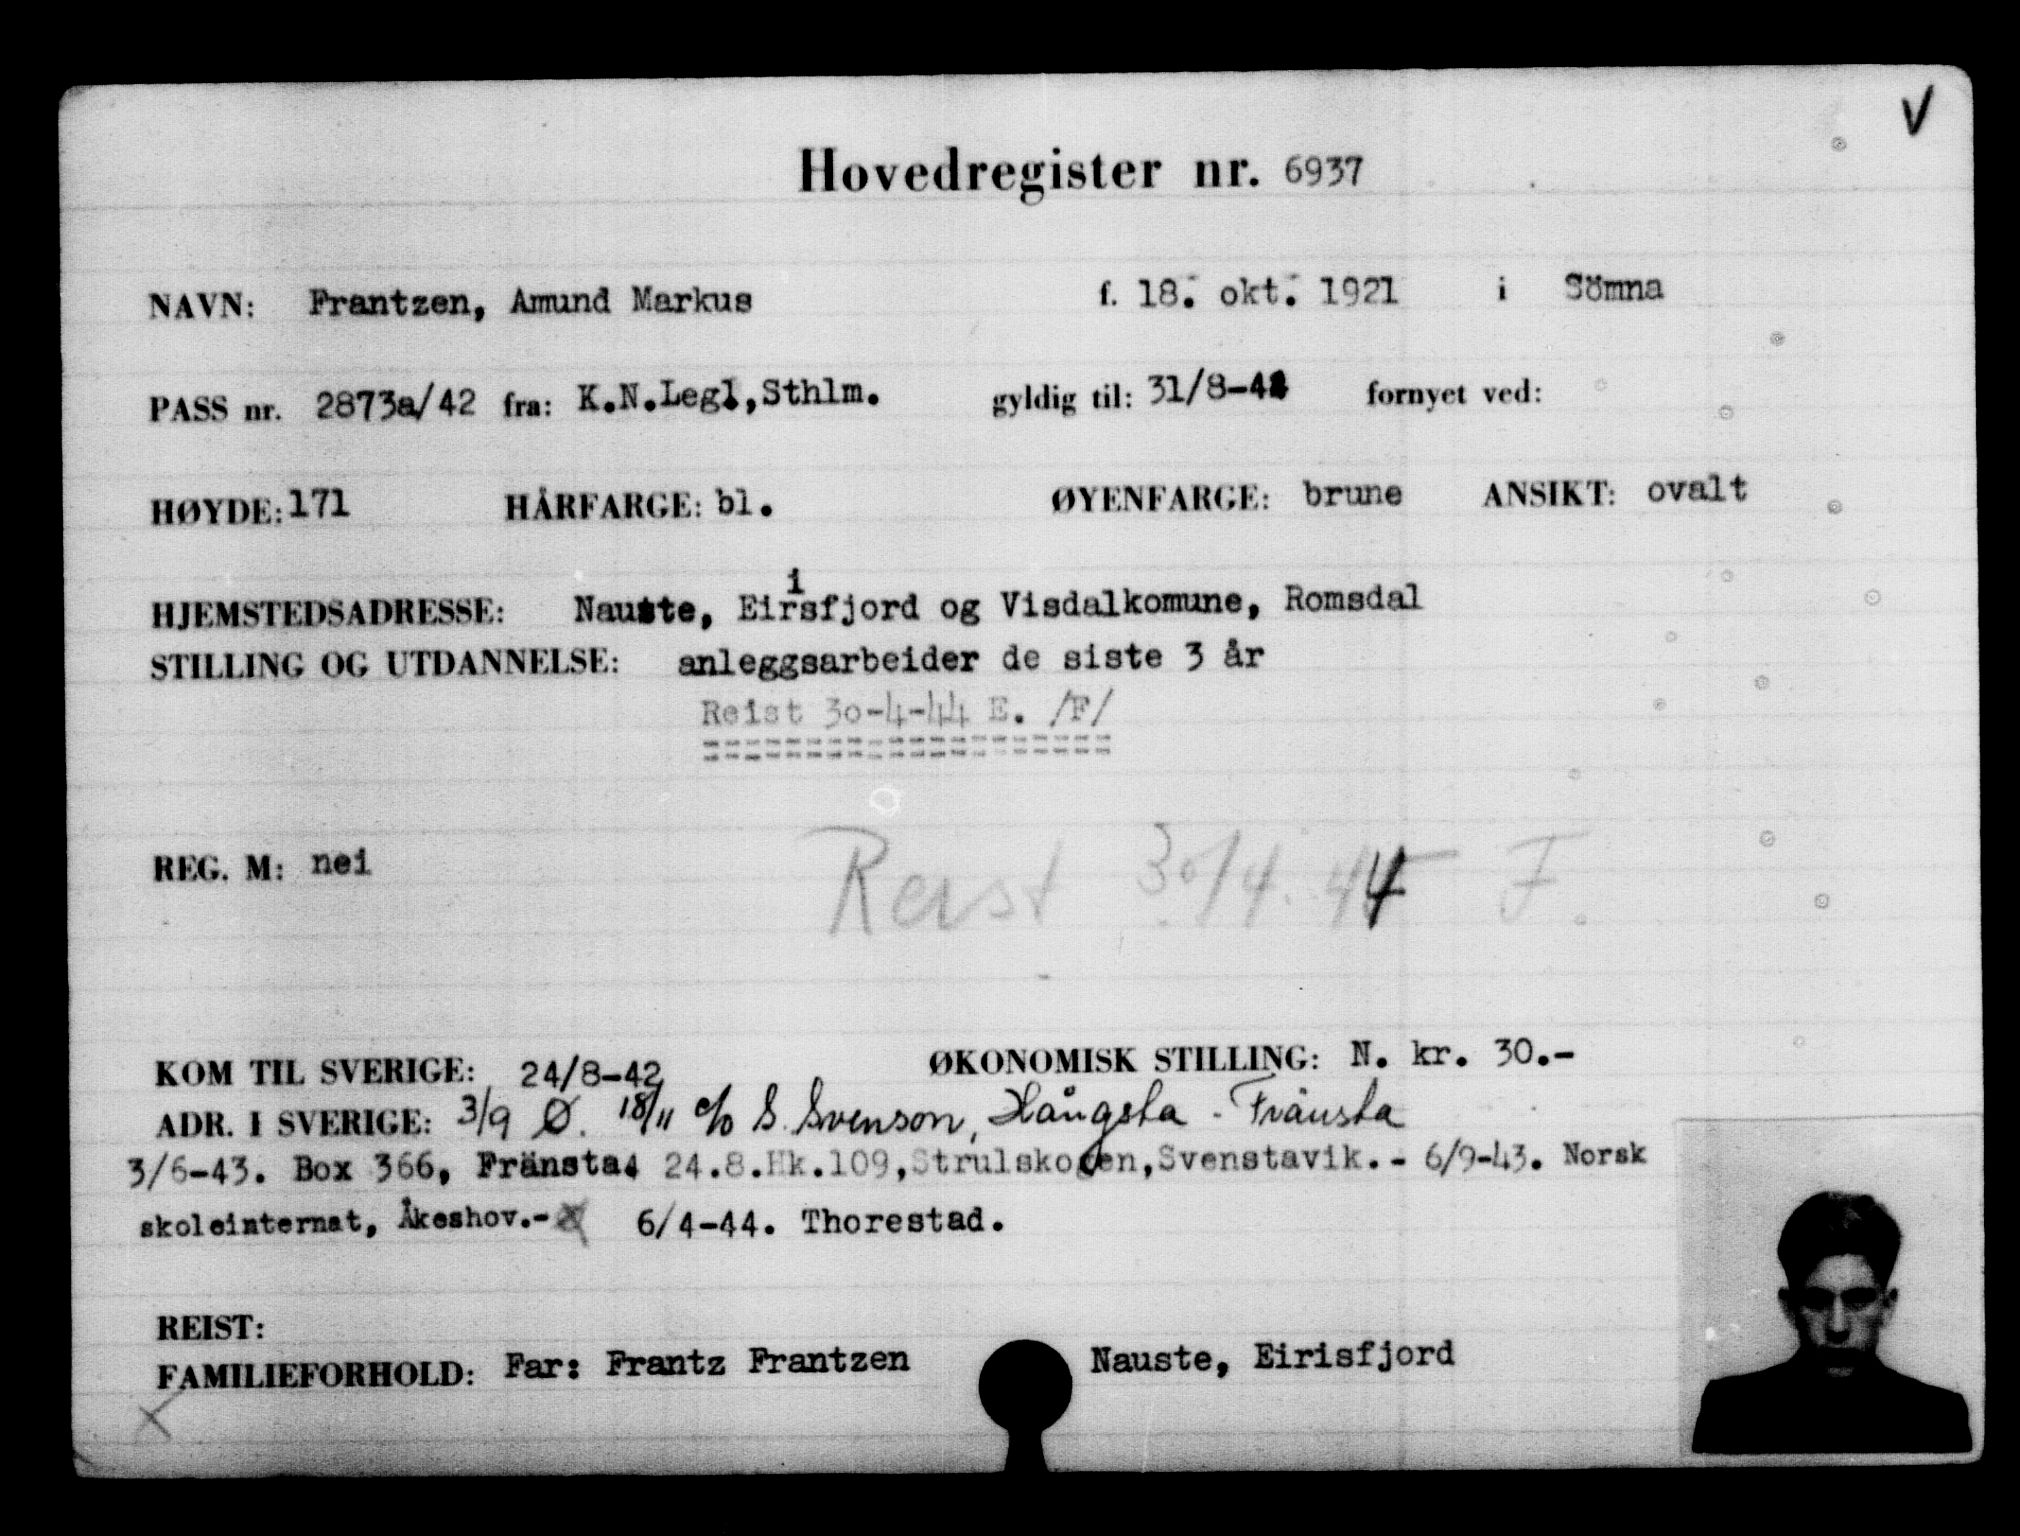 V
Hovedregister nr. 6937
NAVN: Frantzen, Amund Markus f. 18. okt. 1921 i Sömna
PASS nr. 2873a/42 fra: K.N.Legl,Sthlm. gyldig til: 31/8-4 fornyet ved:
HØYDE: 171 HÅRFARGE: bl. ØYENFARGE: brune ANSIKT: ovalt
HJEMSTEDSADRESSE: Nauste, Eirisfjord og Visdalkomune, Romsdal
STILLING OG UTDANNELSE: anleggsarbeider de siste 3 år
Reist 30-4-44 E. /F/
====================
REG. M: nei
Reist 30/4.44 F.
KOM TIL SVERIGE: 24/8-42 ØKONOMISK STILLING: N. kr. 30.-
ADR. I SVERIGE: 3/9 Ø. 18/11 c/o S. Svenson, Hångsta - Frånsta
3/6-43. Box 366, Fränsta. 24.8.Hk.109,Strulskogen,Svenstavik.- 6/9-43. Norsk
skoleinternat, Åkeshov.- 6/4-44. Thorestad.
REIST:
FAMILIEFORHOLD: Far: Frantz Frantzen Nauste, Eirisfjord
X